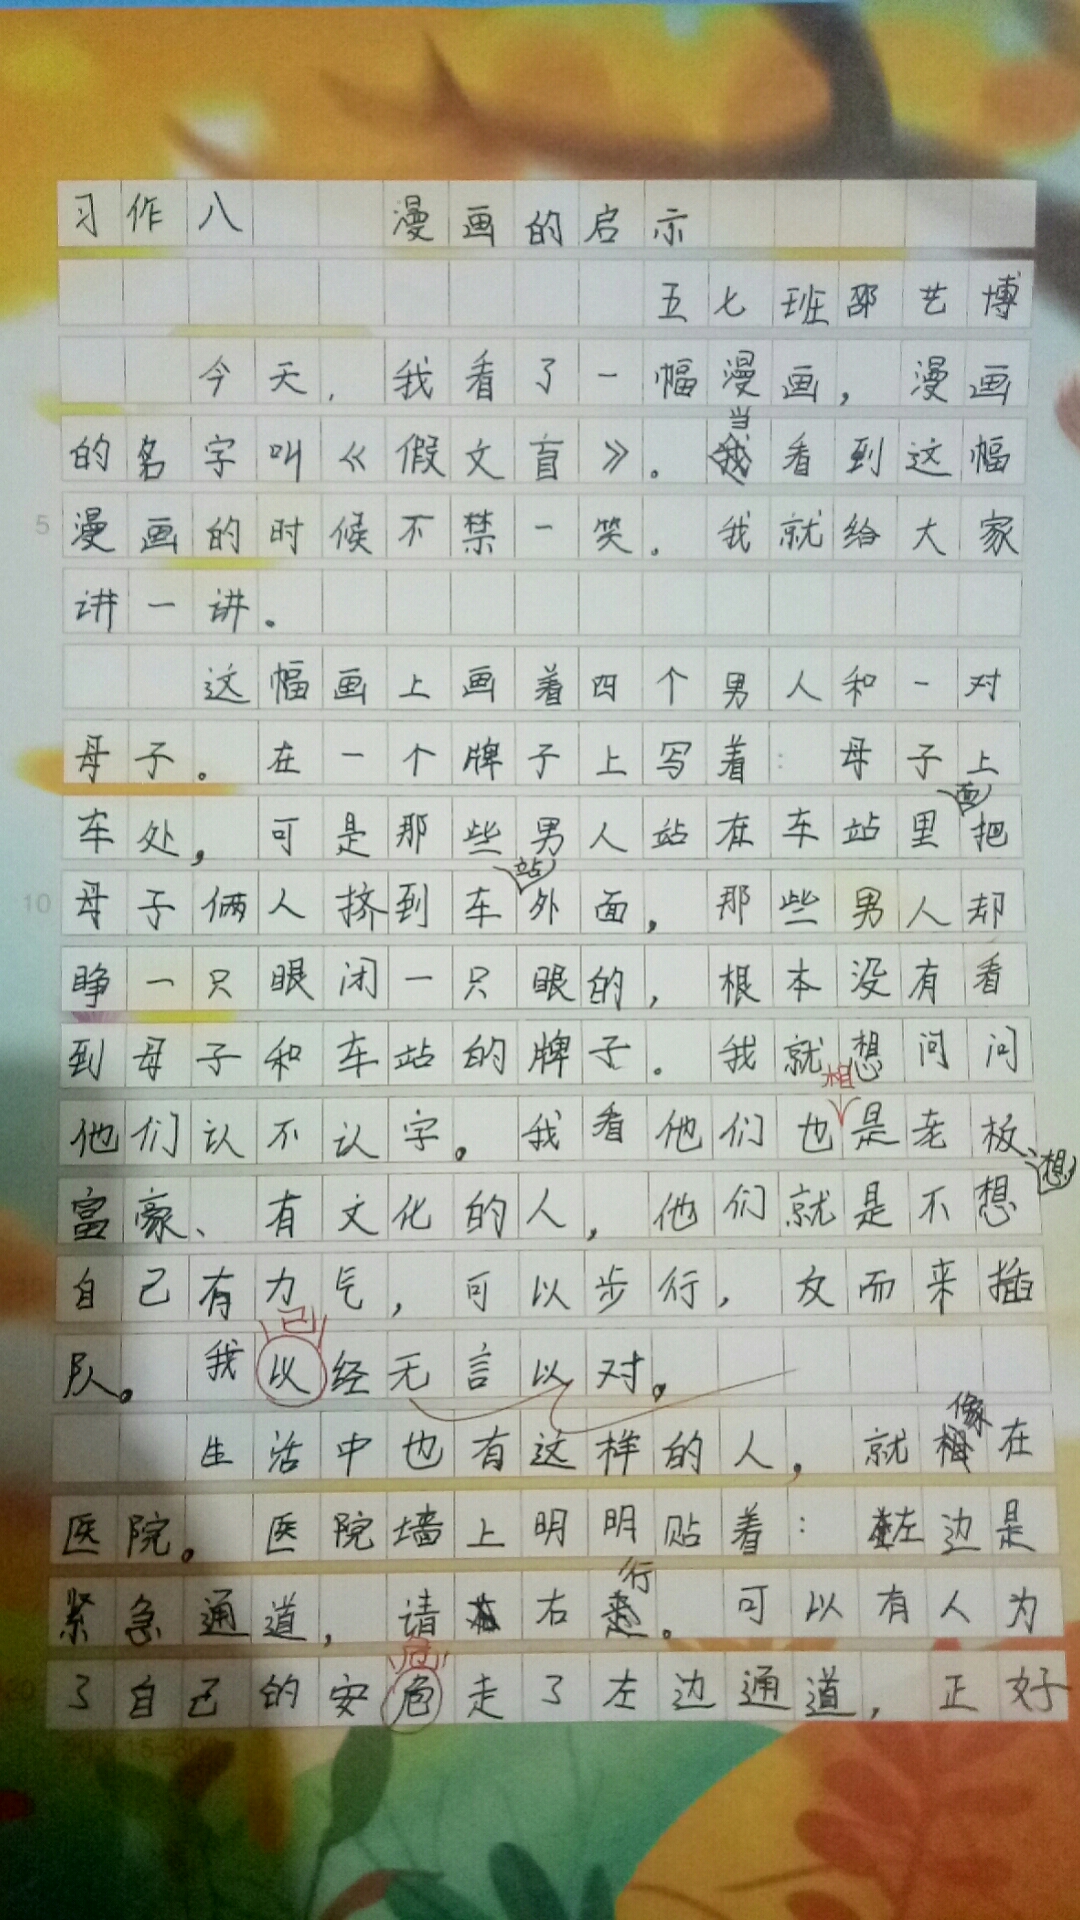 习作八 漫画的启示
五七班邵艺博
今天，我看了一幅漫画，漫画
的名字叫《假文盲》。当看到这幅
5 漫画的时候不禁一笑。我就给大家
讲一讲。
这幅画上画着四个男人和一对
母子。在一个牌子上写着：母子上
车处，可是那些男人站在车站里面把
10 母子俩人挤到车站外面，那些男人却
睁一只眼闭一只眼的，根本没有看
到母子和车站的牌子。我就想问问
他们认不认字。我看他们也相是老板、
富豪、有文化的人，他们就是不想想
自己有力气，可以步行，文而来插
队。我以己经无言以对。
生活中也有这样的人，就像在
医院。医院墙上明明贴着：左边是
紧急通道，请右行。可以有人为
了自己的安危走了左边通道，正好